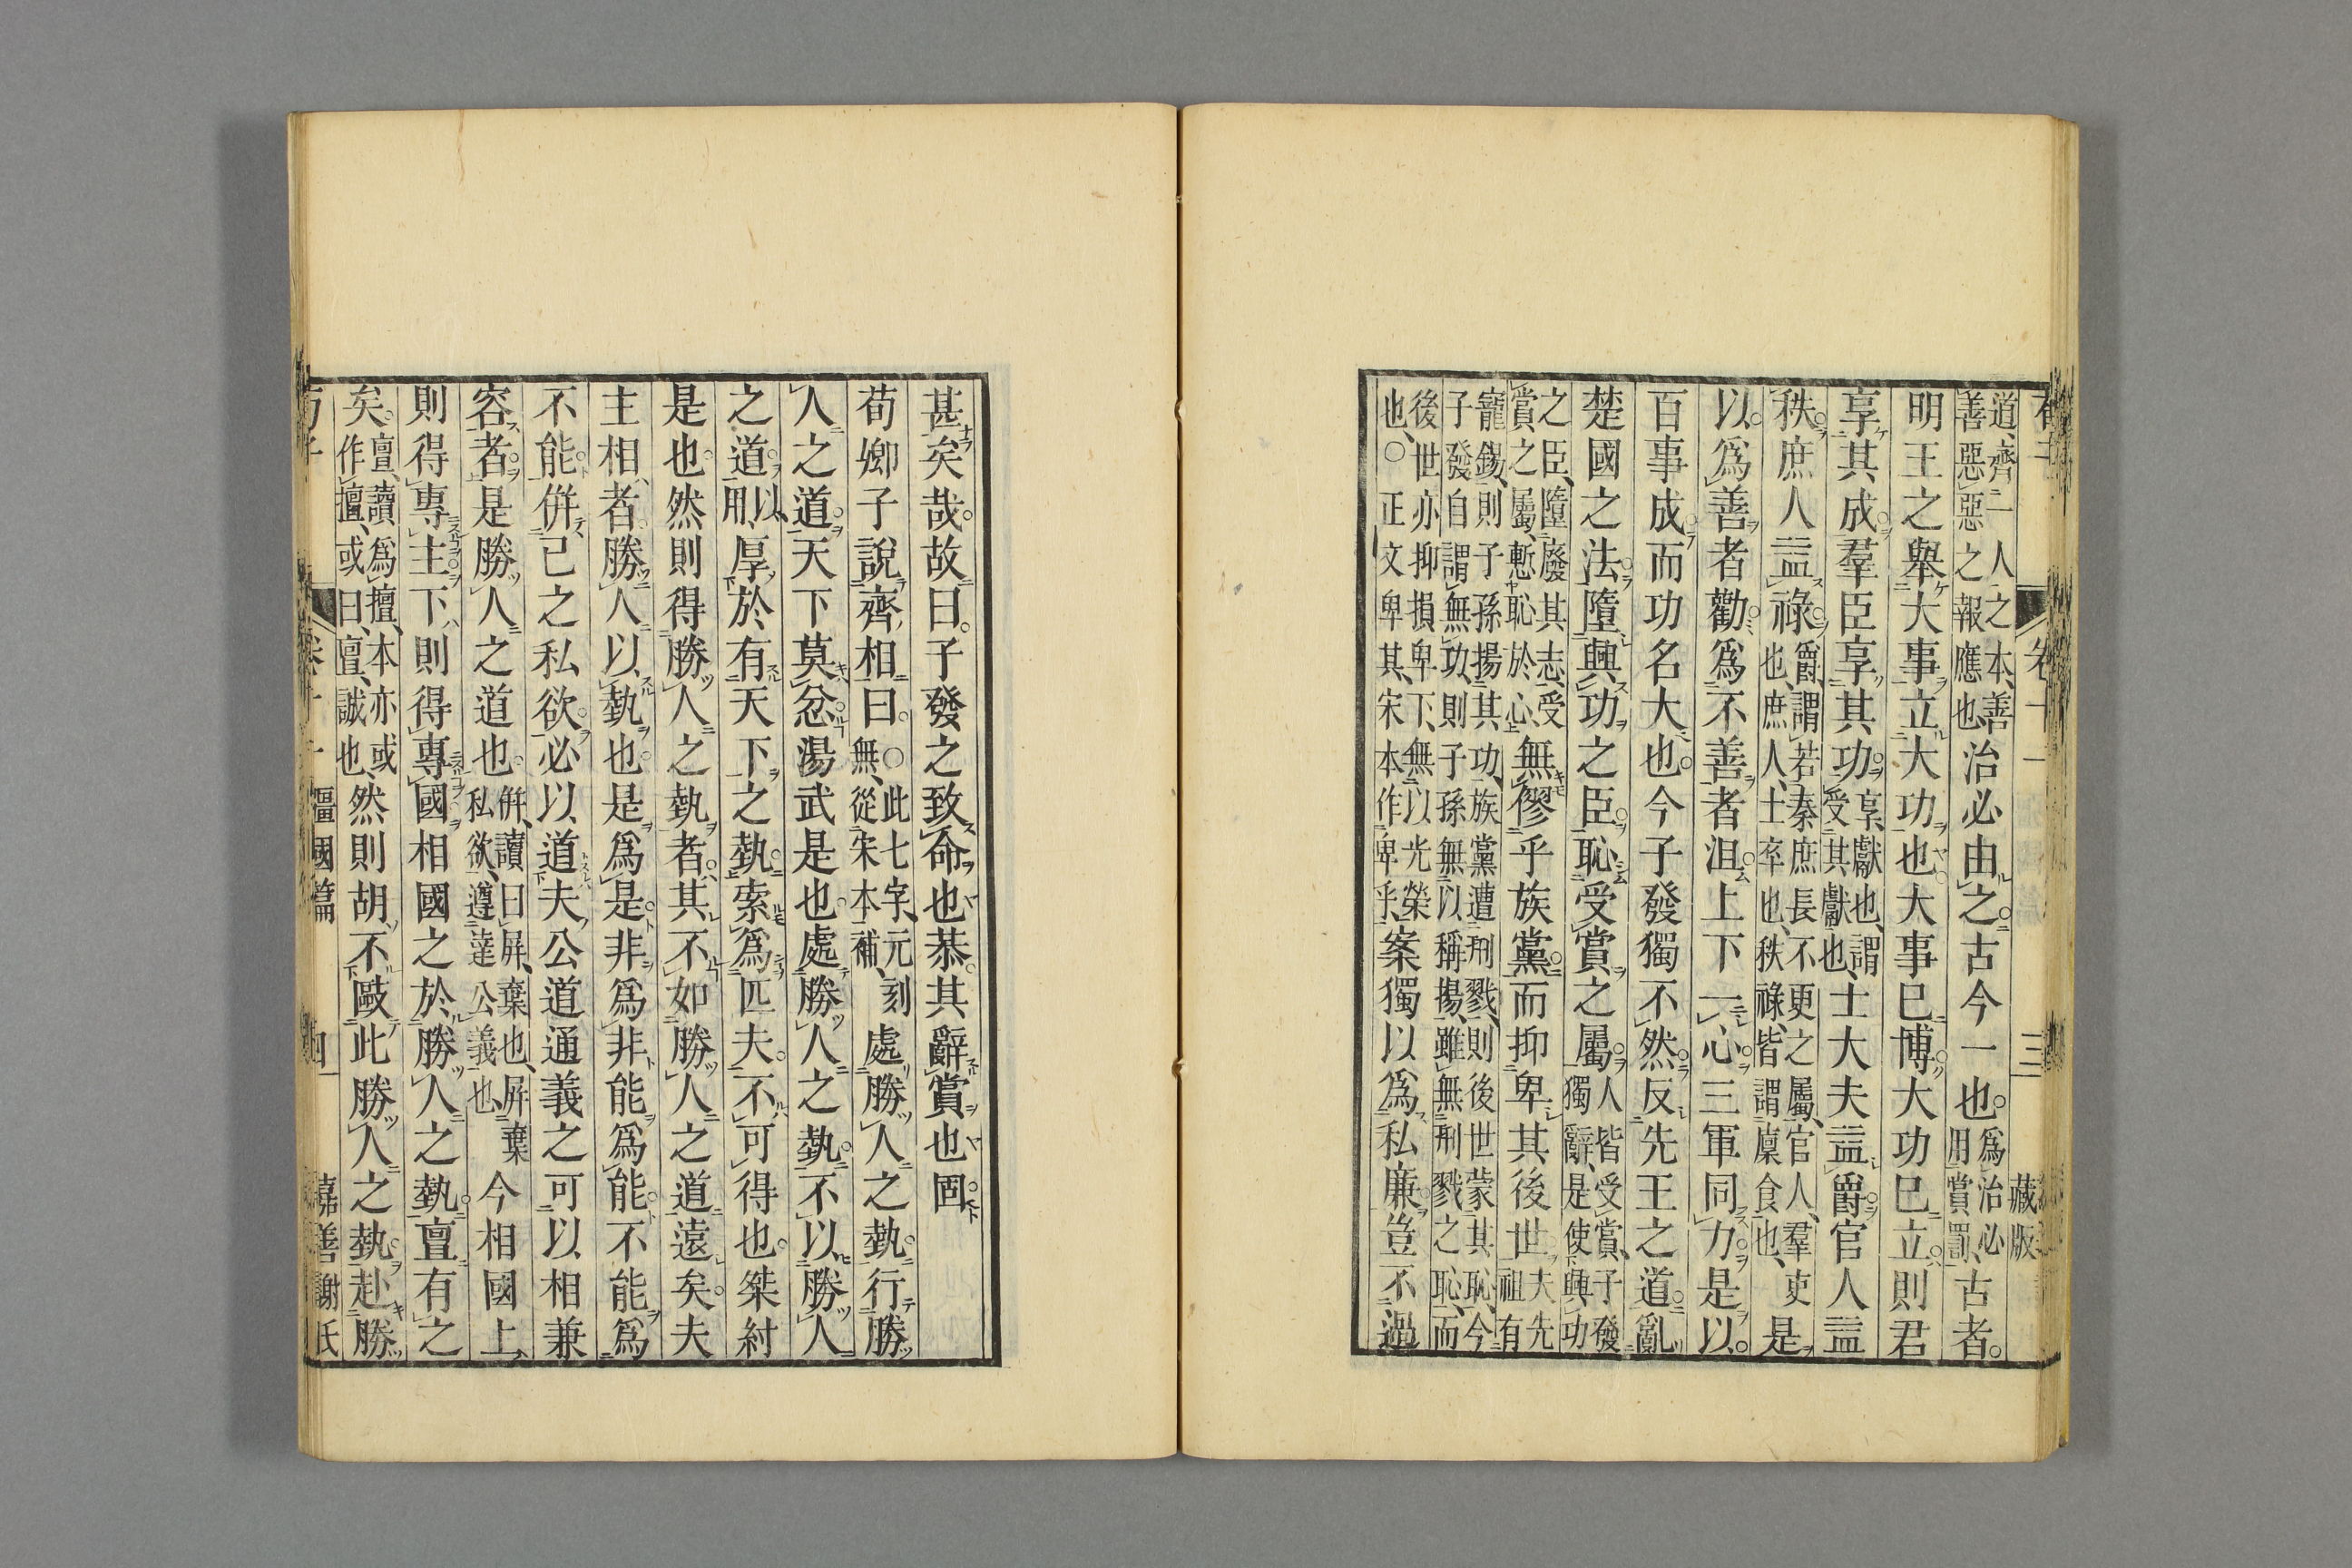 荀子 卷十一 三 藏版
道、齊一人之本、善
善惡惡之報應也 治必由之古今一也 爲治必
用賞罰 古者
明王之舉大事立大功也大事已博大功已立則君
享其成羣臣享其功 享、獻也、謂
受其獻也、 士大夫益爵官人益
秩庶人益祿 爵、謂若秦庶長不更之屬、官人、羣吏
也、庶人、士卒也、秩祿、皆謂廩食也、 是
以爲善者勸爲不善者沮上下一心三軍同力是以
百事成而功名大也今子發獨不然反先王之道亂
楚國之法墮興功之臣恥受賞之屬 人皆受賞、子發
獨辭、是使興功
之臣、墮廢其志、受
賞之屬、慙恥於心 無僇乎族黨而抑卑其後世 夫先
祖有
寵錫、則子孫揚其功、族黨遭刑戮、則後世蒙其恥、今
子發自謂無功、則子孫無以稱揚、雖無刑戮之恥、而
後世亦抑損卑下、無以光榮
也、○正文卑其、宋本作卑乎、 案獨以爲私廉豈不過
甚矣哉故曰子發之致命也恭其辭賞也固
荀卿子說齊相曰 ○此七字、元刻
無、從宋本補、 處勝人之埶行勝
人之道天下莫忿湯武是也處勝人之埶不以勝人
之道 以、
用、 厚於有天下之埶索爲匹夫不可得也桀紂
是也然則得勝人之埶者其不如勝人之道遠矣夫
主相者勝人以埶也是爲是非爲非能爲能不能爲
不能併己之私欲必以道夫公道通義之可以相兼
容者是勝人之道也 併、讀曰屏、棄也、屏棄
私欲、遵達公義也、 今相國上
則得專主下則得專國相國之於勝人之埶亶有之
矣 亶、讀爲擅、本亦或
作擅、或曰、亶、誠也、 然則胡不敺此勝人之埶赴勝
荀子 卷十一 彊國篇 四 嘉善謝氏